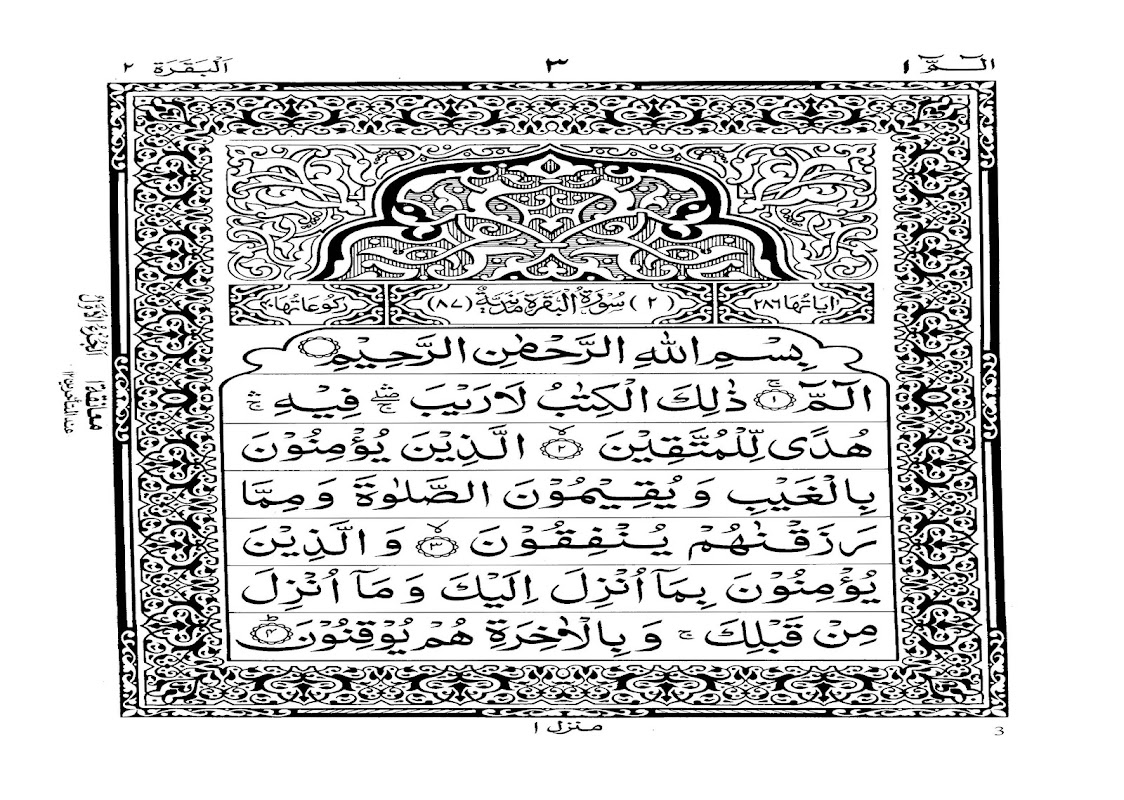 الٓـمّٓ ١ ٣ اَلْبَقَرَة ٢
اٰیَاتُهَا ٢٨٦ (٢) سُوْرَةُ الْبَقَرَةِ مَدَنِیَّةٌ (٨٧) رُكُوْعَاتُهَا
بِسْمِ اللّٰهِ الرَّحْمٰنِ الرَّحِیْمِ
الٓمّٓ ۚ ﴿١﴾ ذٰلِكَ الْكِتٰبُ لَا رَیْبَ ۛۖۚ فِیْهِ ۛۚ
هُدًی لِّلْمُتَّقِیْنَ ۙ ﴿٢﴾ الَّذِیْنَ یُؤْمِنُوْنَ
بِالْغَیْبِ وَ یُقِیْمُوْنَ الصَّلٰوةَ وَ مِمَّا
رَزَقْنٰهُمْ یُنْفِقُوْنَ ۙ ﴿٣﴾ وَ الَّذِیْنَ
یُؤْمِنُوْنَ بِمَاۤ اُنْزِلَ اِلَیْكَ وَ مَاۤ اُنْزِلَ
مِنْ قَبْلِكَ ۚ وَ بِالْاٰخِرَةِ هُمْ یُوْقِنُوْنَ ؕ ﴿٤﴾
منزل ١
3
معانقة ١